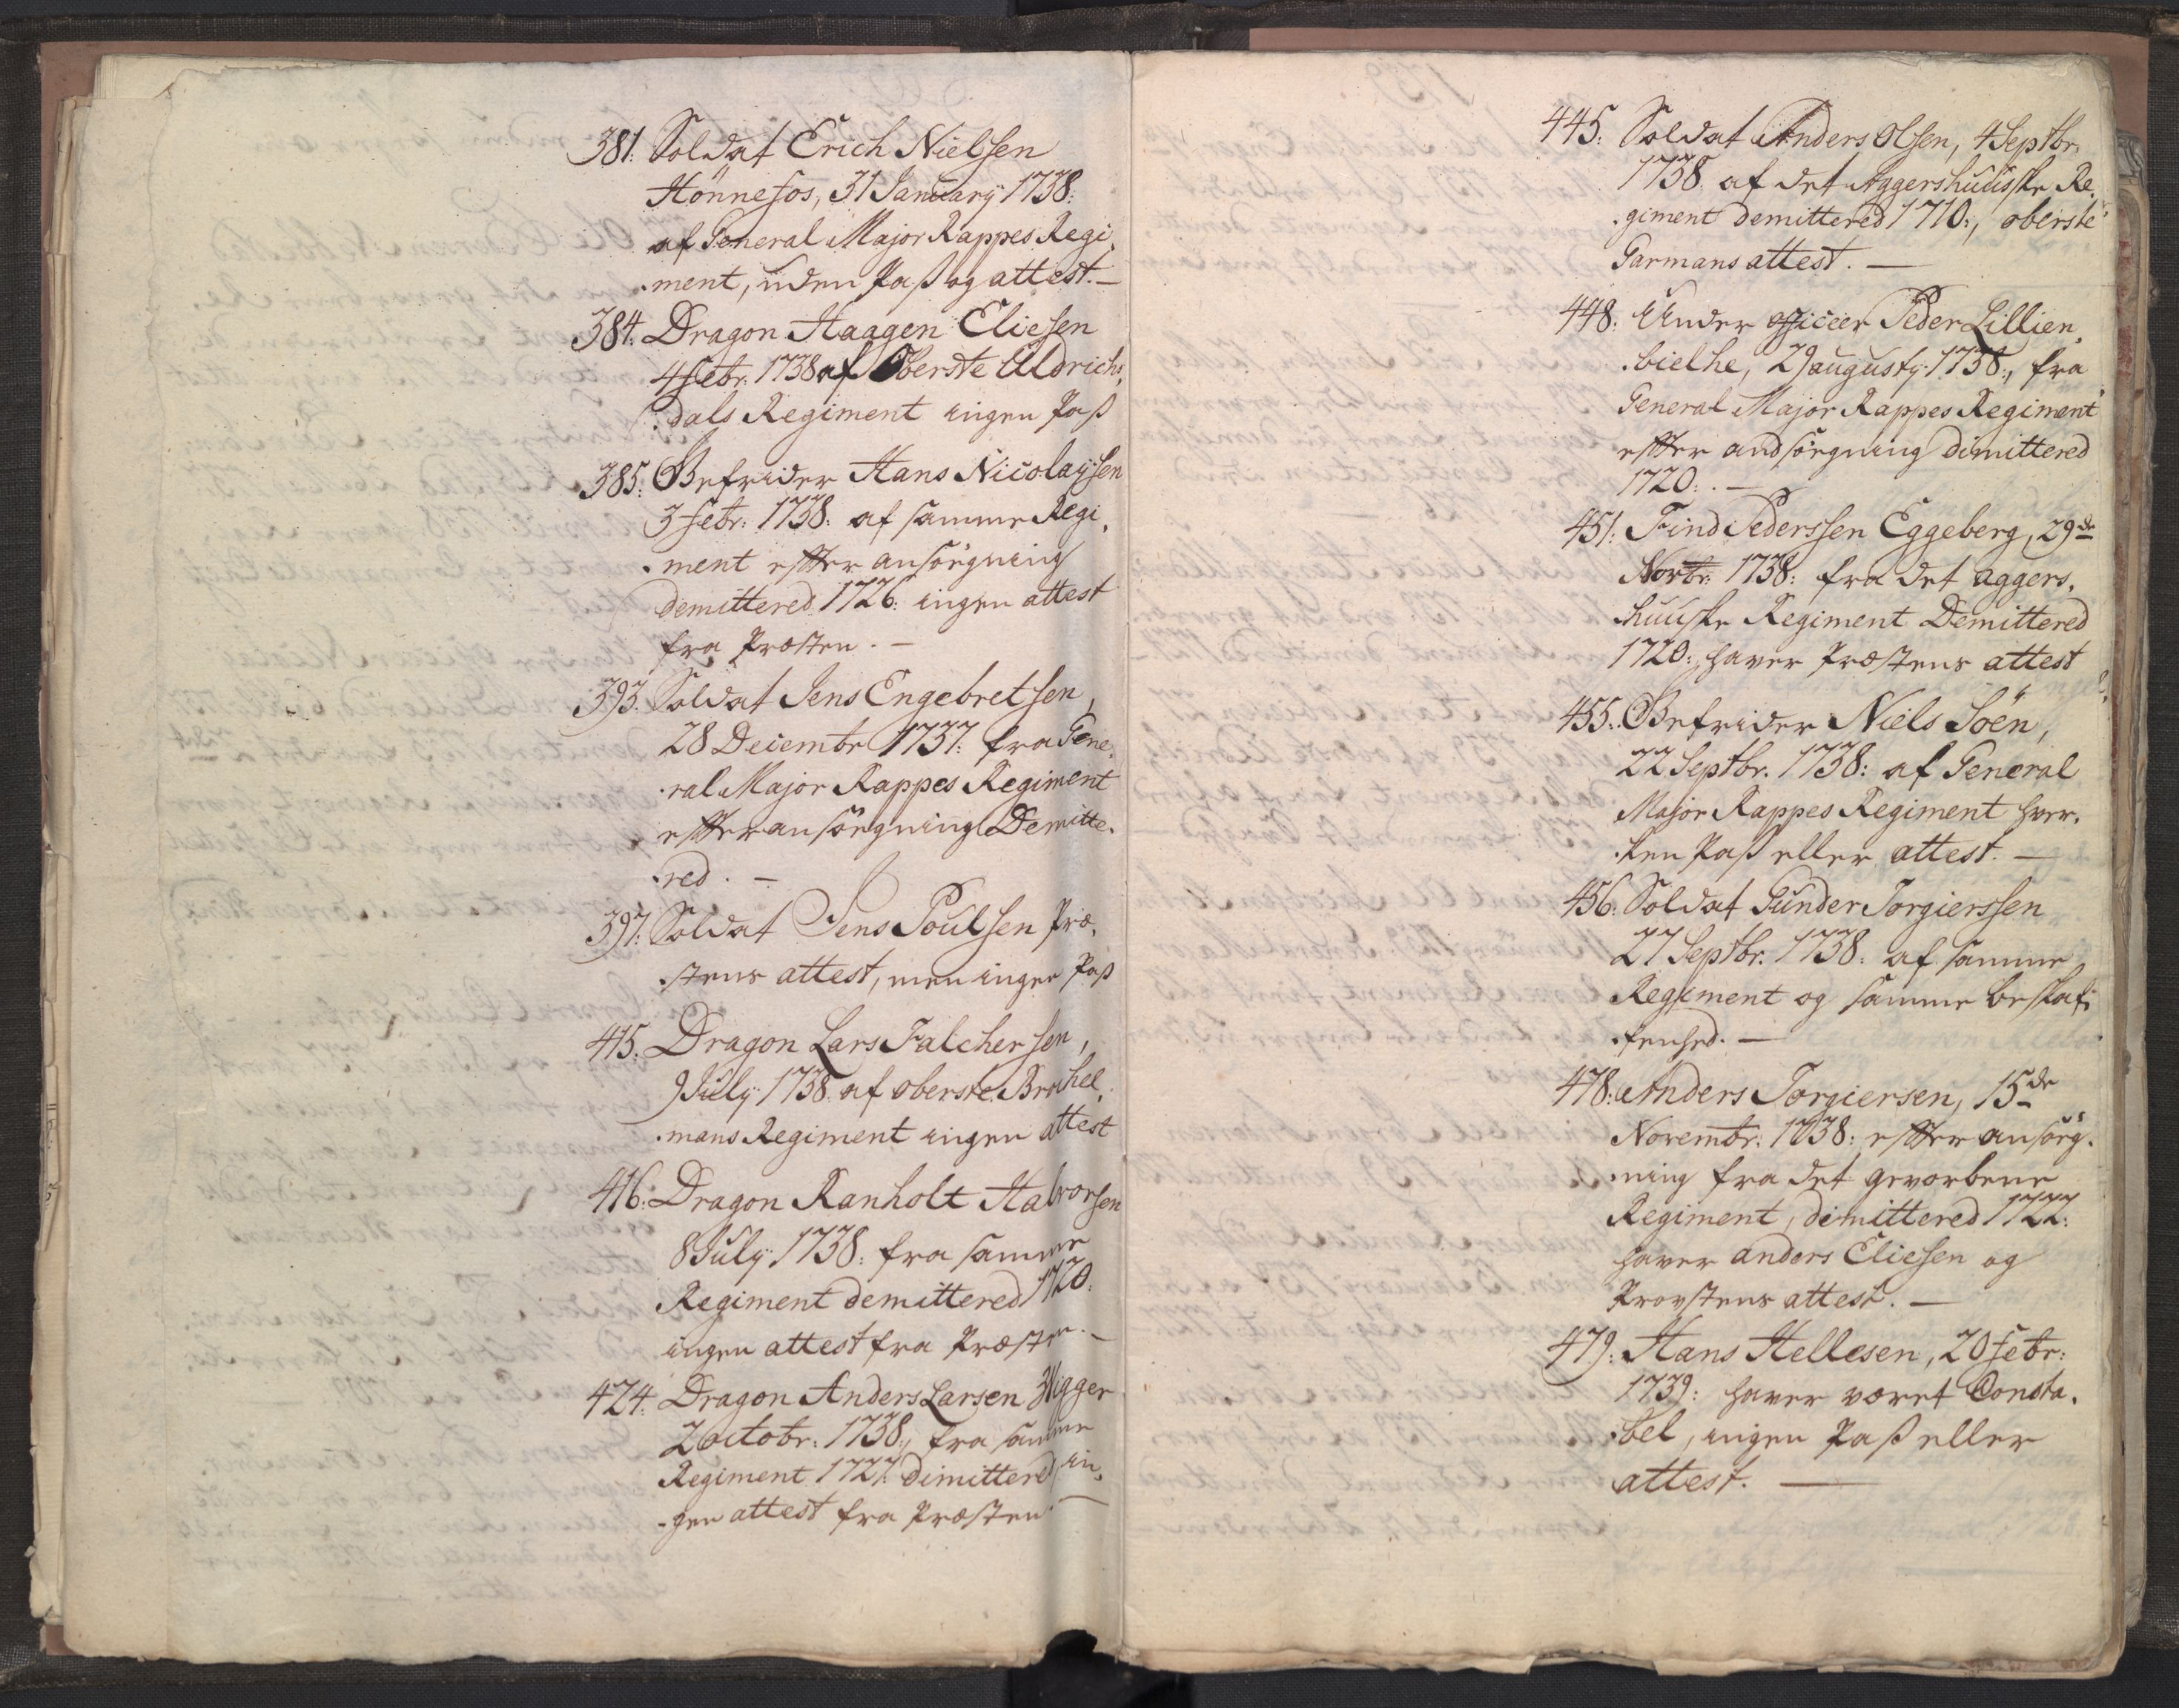 381: Soldat Erich Nielsen
Hönnefos, 31 January 1738:
af General Major Rappes Regi,
.ment, uden Paß og attest. —
384: Dragon Haagen Eliesen
4 febr. 1738 af Oberste Uldrichs,
.dals Regiment ingen Paß
385: Befrider Hans Nicolaysen
3 febr: 1738: af samme Regi,
.ment effter ansögning
demittered 1726: ingen attest
fra Præsten. —
393. Soldat Jens Engebretsen,
28 Decembr 1737: fra Gene,
.ral Major Rappes Regiment
effter ansögning Demitte,
.red. —
397: Soldat Jens Poulsen Præ,
.stens attest, men ingen Paß
415: Dragon Lars Falchersen,
9 July 1738. af oberste Brochel,
.mans Regiment ingen attest
416: Dragon Ranholt Halvorsen
8 July 1738: fra samme
Regiment demittered 1720:
ingen attest fra Præsten. —
424: Dragon Anders Larsen
2 octobr: 1738:, fra samme
Regiment 1727: dimittered in,
.gen attest fra Præsten. —
445: Soldat Anders Olsen, 4 Septbr.
1738. af det Aggershuusske Re,
.giment demittered 1710:, oberste
Garmans attest. —
448: Under officeer Peder Lillien,
.bielke, 29 augusty 1738:, fra
General Major Rappes Regiment
effter andsögning dimittered
1720: . —
451: Find Pederssen Eggeberg, 29de
Novbr: 1738: fra det agers,
.huuske Regiment Demittered
1720:, haver Præstens attest
455: Befrider Niels Söen,
22 Septbr. 1738: af General
Major Rappes Regiment hver,
.ken Paß eller attest. —
456: Soldat Gunder Torgierssen
27 Septbr. 1738: af samme
Regiment og samme beskaf,
.fenhed. —
478: Anders Torgiersen, 15de
Novembr: 1738: effter ansög,
.ning fra det gevorbene
Regiment, dimittered 1722:
haver anders Eliesen og
Provstens attest. —
479: Hans Hellesen, 20 febr:
1739: haver været Consta,
.bel, ingen Paß eller
attest. —